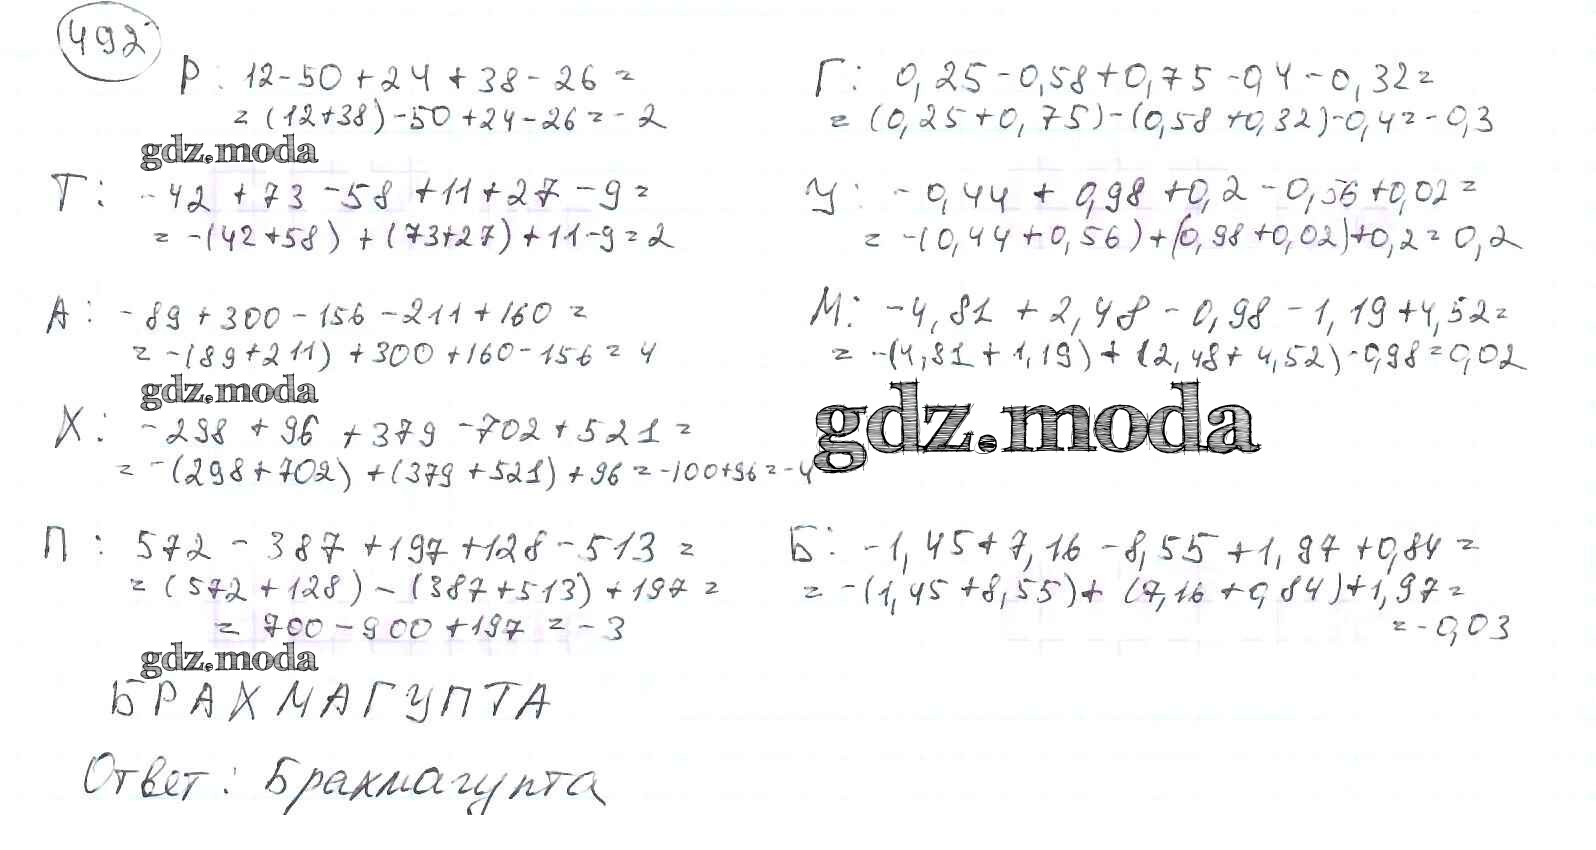 492
Р: 12-50+24+38-26=
=(12+38)-50+24-26=-2
gdz.moda
Т: -42+73-58+11+27-9=
=-(42+58)+(73+27)+11-9=2
А: -89+300-156-211+160=
=-(89+211)+300+160-156=4
gdz.moda
Х: -298+96+379-702+521=
=-(298+702)+(379+521)+96=-100+96=-4
П: 572-387+197+128-513=
=(572+128)-(387+513)+197=
=700-900+197=-3
gdz.moda
БРАХМАГУПТА
Ответ: Брахмагупта
Г: 0,25-0,58+0,75-0,4-0,32=
=(0,25+0,75)-(0,58+0,32)-0,4=-0,3
У: -0,44+0,98+0,2-0,56+0,02=
=-(0,44+0,56)+(0,98+0,02)+0,2=0,2
М: -4,81+2,48-0,98-1,19+4,52=
=-(4,81+1,19)+(2,48+4,52)-0,98=0,02
gdz.moda
Б: -1,45+7,16-8,55+1,97+0,84=
=-(1,45+8,55)+(7,16+0,84)+1,97=
=-0,03